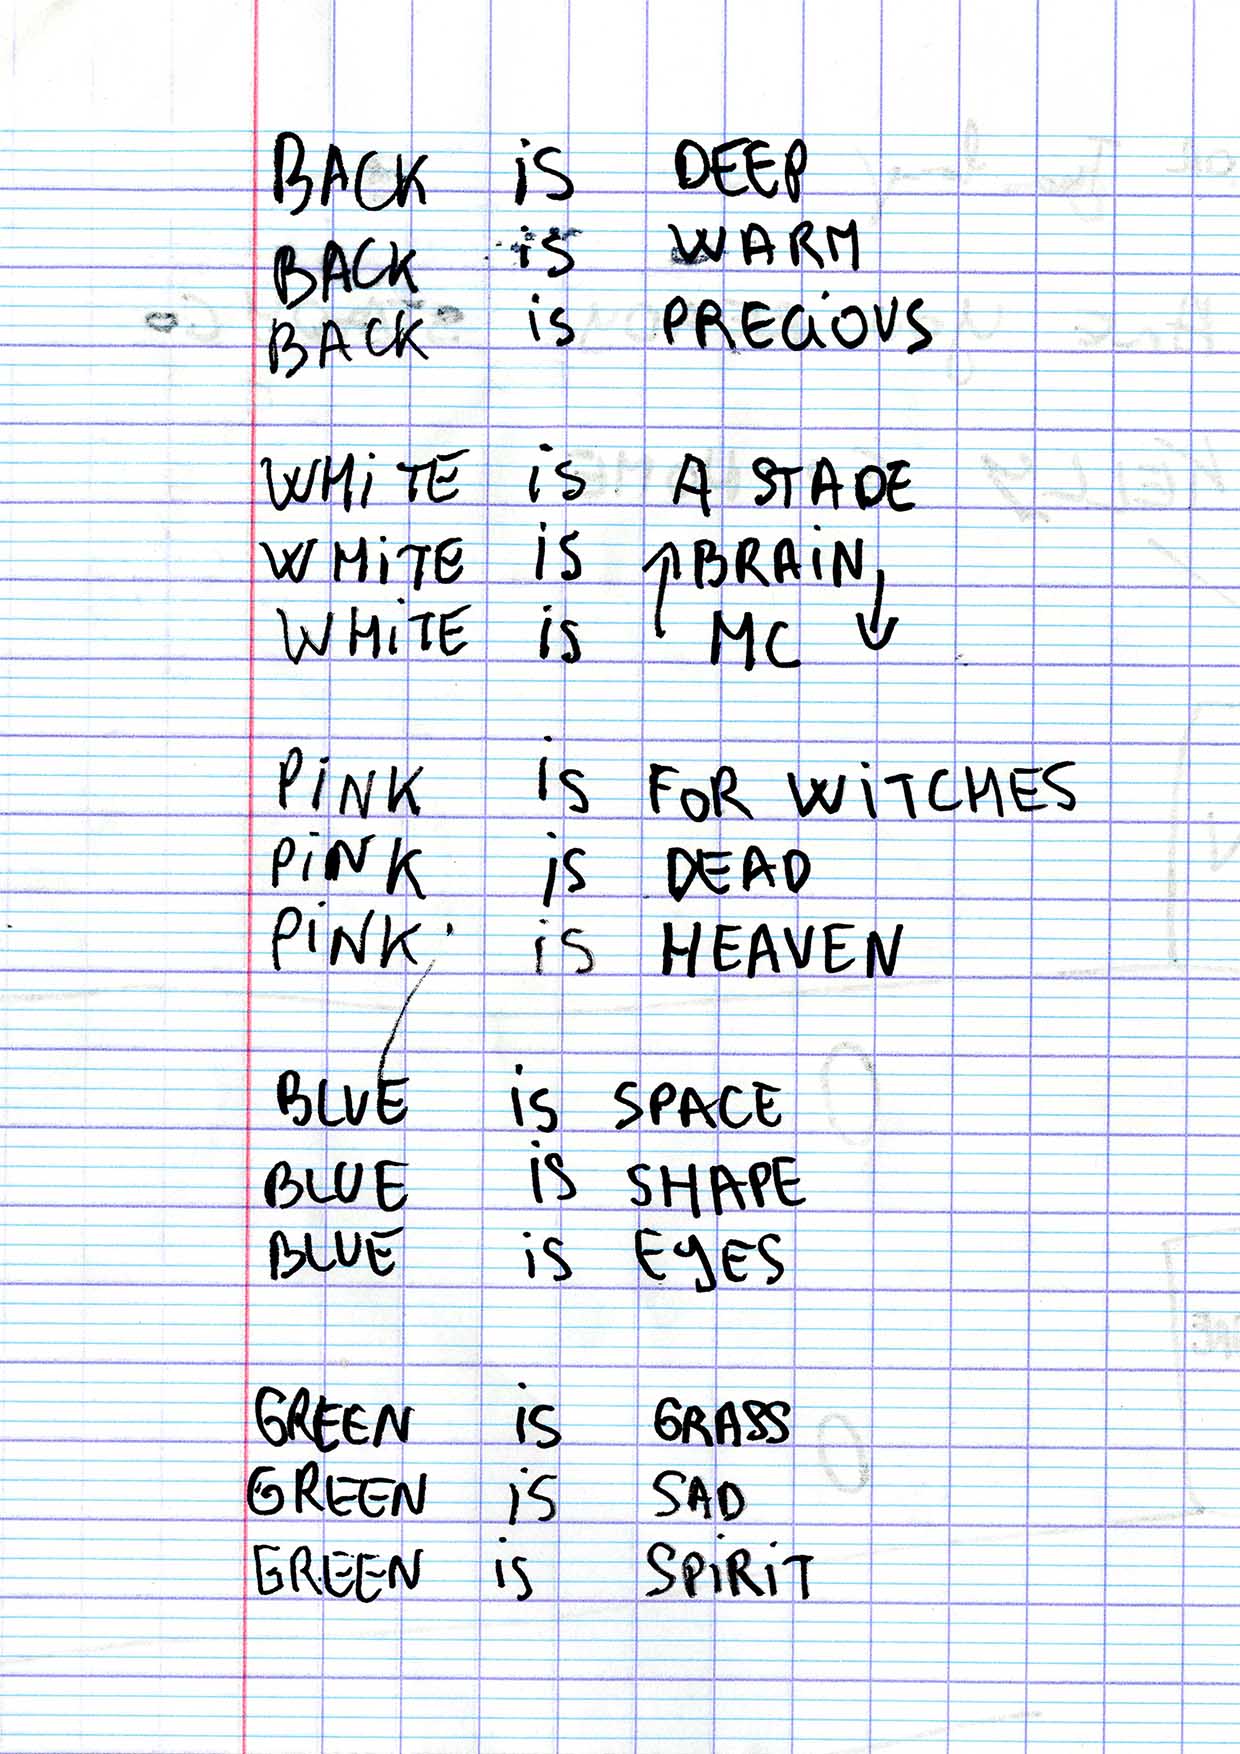 BACK is DEEP
BACK is WARM
BACK is PRECiOUS
WHiTE is A STADE
WHiTE is ↑BRAiN↓
WHiTE is MC
PiNK is FOR WiTCHES
PiNK is DEAD
PiNK is HEAVEN
BLUE is SPACE
BLUE is SHAPE
BLUE is EyES
GREEN is GRASS
GREEN is SAD
GREEN is SPiRiT